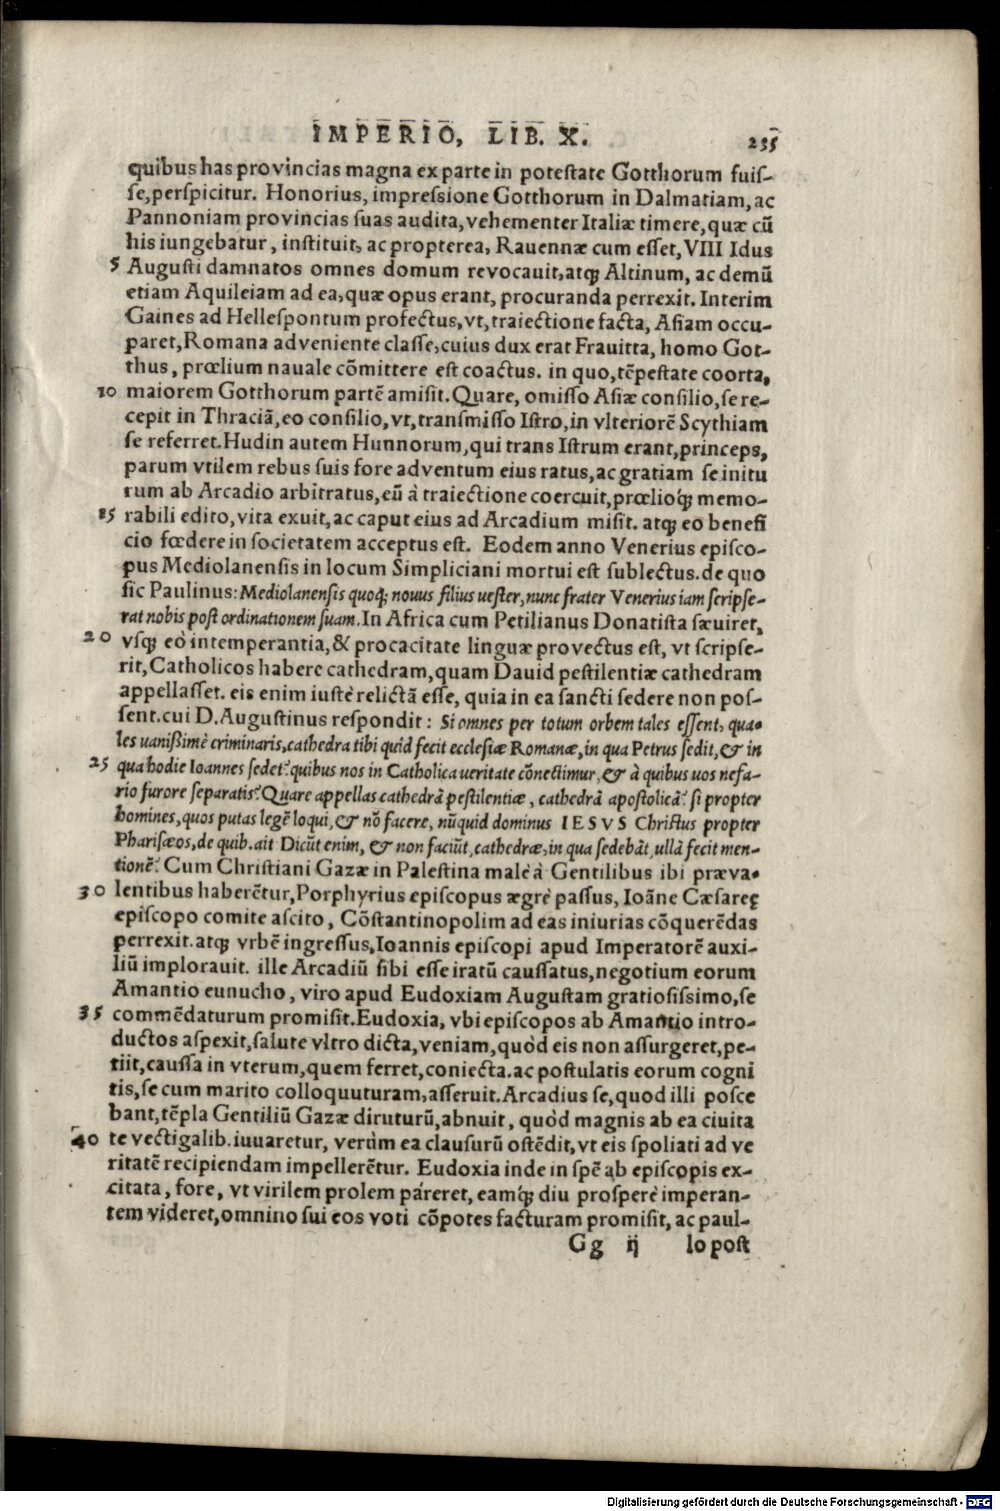 IMPERIO, LIB. X. 235
quibus has prouincias magna ex parte in potestate Gotthorum fuiſ-
ſe, perſpicitur. Honorius, impreſsione Gotthorum in Dalmatiam, ac
Pannoniam prouincias ſuas audita, vehementer Italiæ timere, quæ cũ
his iungebatur, inſtituit, ac propterea, Rauennæ cum eſſet, VIII Idus
5 Auguſti damnatos omnes domum reuocauit, atq́; Altinum, ac demũ
etiam Aquileiam ad ea, quæ opus erant, procuranda perrexit. Interim
Gaines ad Helleſpontum profectus, vt, traiectione facta, Aſiam occu-
paret, Romana adueniente claſſe, cuius dux erat Frauitta, homo Got-
thus, prœlium nauale cõmittere eſt coactus. in quo, tẽpeſtate coorta,
10 maiorem Gotthorum partẽ amiſit. Quare, omiſſo Aſiæ conſilio, ſe re-
cepit in Thraciã, eo conſilio, vt, tranſmiſſo Iſtro, in vlteriorẽ Scythiam
ſe referret. Hudin autem Hunnorum, qui trans Iſtrum erant, princeps,
parum vtilem rebus ſuis fore aduentum eius ratus, ac gratiam ſe initu
rum ab Arcadio arbitratus, eũ à traiectione coercuit, prœlioq́; memo-
15 rabili edito, vita exuit, ac caput eius ad Arcadium miſit. atq́; eo benefi
cio fœdere in ſocietatem acceptus eſt. Eodem anno Venerius epiſco-
pus Mediolanenſis in locum Simpliciani mortui eſt ſublectus. de quo
ſic Paulinus: Mediolanenſis quoq́; nouus filius ueſter, nunc frater Venerius iam ſcripſe-
rat nobis poſt ordinationem ſuam. In Africa cum Petilianus Donatiſta ſæuiret,
20 vſq́; eò intemperantia, & procacitate linguæ prouectus eſt, vt ſcripſe-
rit, Catholicos habere cathedram, quam Dauid peſtilentiæ cathedram
appellaſſet. eis enim iuſtè relictã eſſe, quia in ea ſancti ſedere non poſ-
ſent. cui D. Auguſtinus reſpondit: Si omnes per totum orbem tales eſſent, qua-
les uanißimè criminaris, cathedra tibi quid fecit eccleſiæ Romanæ, in qua Petrus ſedit, & in
25 qua hodie Ioannes ſedet? quibus nos in Catholica ueritate cõnectimur, & à quibus uos nefa-
rio furore ſeparatis? Quare appellas cathedrã peſtilentiæ, cathedrã apoſtolicã? ſi propter
homines, quos putas legẽ loqui, & nõ facere, nũquid dominus IESVS Chriſtus propter
Phariſæos, de quib. ait Dicũt enim, & non faciũt, cathedræ, in qua ſedebãt, ullã fecit men-
tionẽ? Cum Chriſtiani Gazæ in Paleſtina malè à Gentilibus ibi præua-
30 lentibus haberẽtur, Porphyrius epiſcopus ægrè paſſus, Ioãne Cæſareę
epiſcopo comite aſcito, Cõſtantinopolim ad eas iniurias cõquerẽdas
perrexit. atq́; vrbẽ ingreſſus, Ioannis epiſcopi apud Imperatorẽ auxi-
liũ implorauit. ille Arcadiũ ſibi eſſe iratũ cauſſatus, negotium eorum
Amantio eunucho, viro apud Eudoxiam Auguſtam gratioſiſsimo, ſe
35 commẽdaturum promiſit. Eudoxia, vbi epiſcopos ab Amantio intro-
ductos aſpexit, ſalute vltro dicta, veniam, quòd eis non aſſurgeret, pe-
tiit, cauſſa in vterum, quem ferret, coniecta. ac poſtulatis eorum cogni
tis, ſe cum marito colloquuturam, aſſeruit. Arcadius ſe, quod illi poſce
bant, tẽpla Gentiliũ Gazæ diruturũ, abnuit, quòd magnis ab ea ciuita
40 te vectigalib. iuuaretur, verùm ea clauſurũ oſtẽdit, vt eis ſpoliati ad ve
ritatẽ recipiendam impellerẽtur. Eudoxia inde in ſpẽ ab epiſcopis ex-
citata, fore, vt virilem prolem pareret, eamq́; diu proſperè imperan-
tem videret, omnino ſui eos voti cõpotes facturam promiſit, ac paul-
Gg ij lo poſt
Digitalisierung gefördert durch die Deutsche Forschungsgemeinschaft - DFG